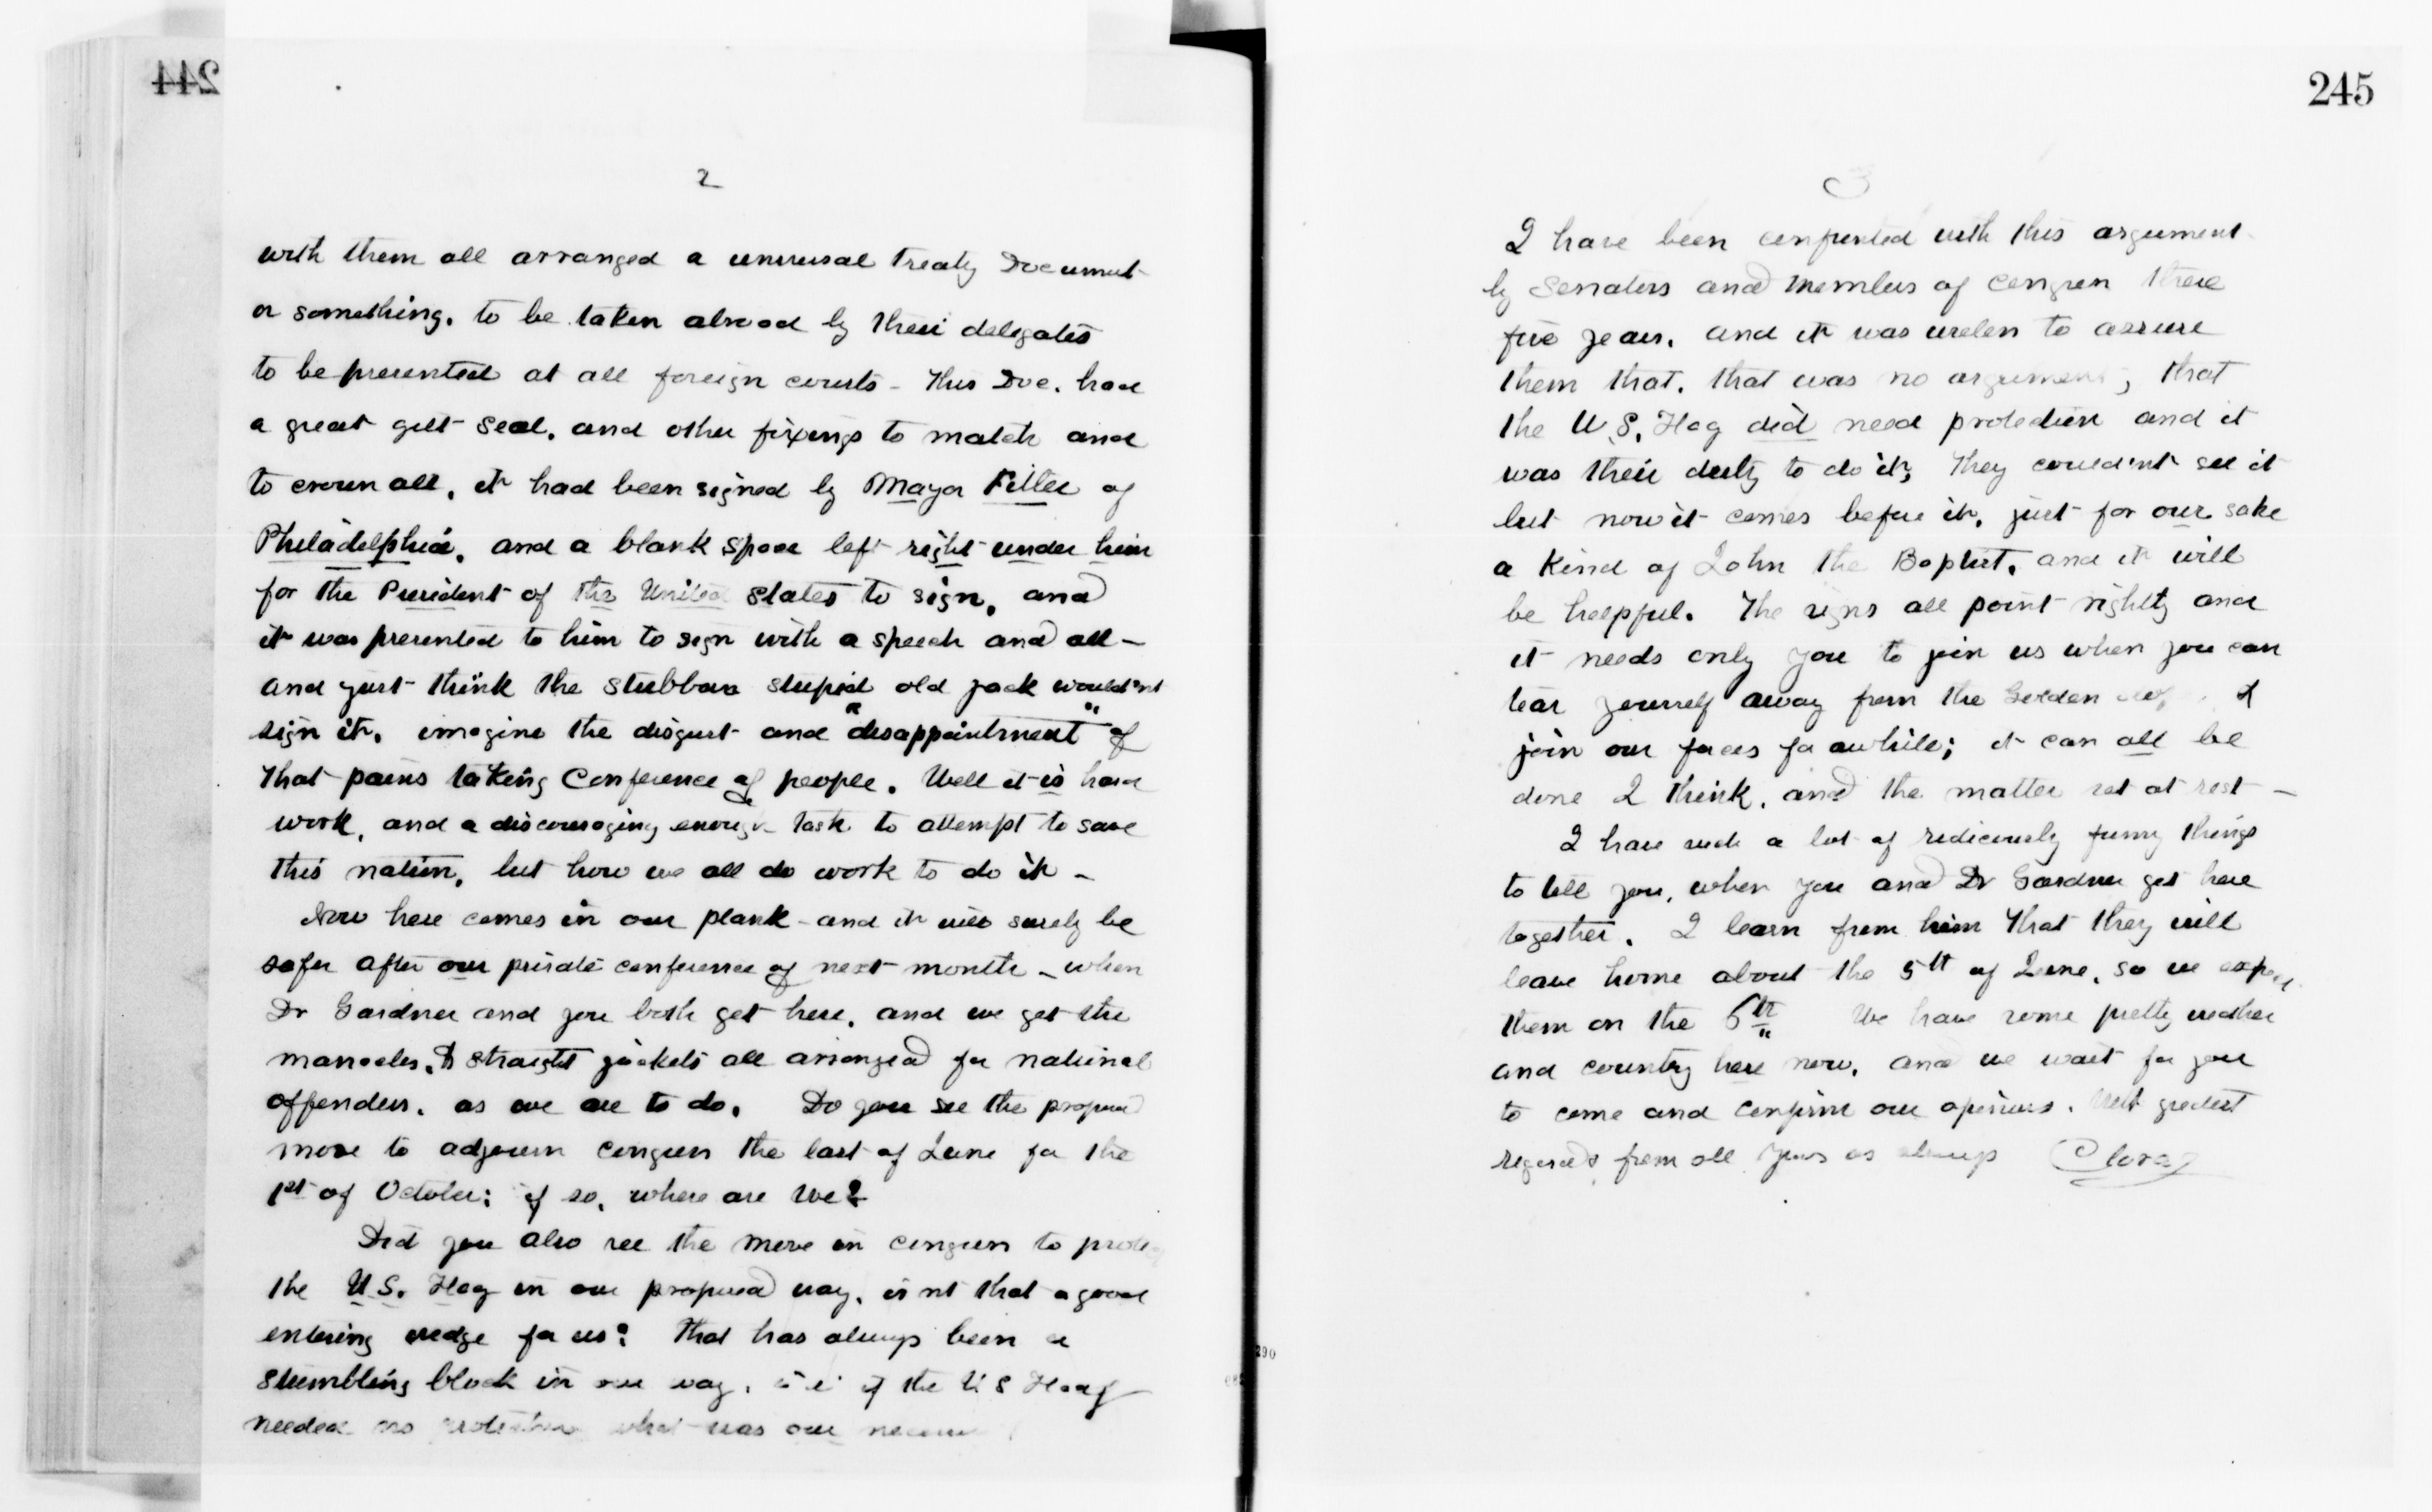 244
2
with them all arranged a universal Treaty Document
or something. to be taken abroad by their delegates
to be presented at all foreign courts - This Doc. had
a great gilt seal. and other fixings to match and
to crown all, it had been signed by Mayor Fitler of
Philadelphia. and a blank space left right under him
for the President of the United States to sign, and
it was presented to him to sign with a speech and all -
and just think the stubborn stupid old jack wouldn't
sign it. imagine the disgust and "disappointment" of
that pains taking Conference of people. Well it is hard
work, and a discouraging enough task to attempt to save
this nation, but how we all do work to do it -
Now here comes in our plank - and it will surely be
safer after our private conference of next month - when
Dr Gardner and you both get here, and we get the
manacles, & straight jackets all arranged for national
offenders. as we are to do. Do you see the proposed
move to adjourn congress the last of June for the
1st of October; if so, where are we?
Did you also see the move in congress to protect
the U.S. Flag in our proposed way. is nt that a good
entering wedge for us? That has always been a
stumbling block in our way. i e if the U S Flag
needed no protection what was our
245
3
I have been confronted with this argument
by Senators and Members of Congress these
five years. and it was useless to assure
them that. that was no argument, that
the U.S. Flag did need protection and it
was their duty to do it, They could'nt see it
but now it comes before it. just for our sake
a kind of John the Baptist. and it will
be helpful. The signs all point rightly and
it needs only you to join us when you can
tear yourself away from the Golden &
join our forces for awhile; it can all be
done I think. and the matter set at rest -
I have such a lot of rediculously funny things
to tell you, when you and Dr Gardner get here
together. I learn from him that they will
leave home about the 5th of June. so we expect
them on the 6th We have some pretty weather
and country here now. and we wait for you
to come and confirm our opinions. With greatest
regards from all Yours as always Clara
290